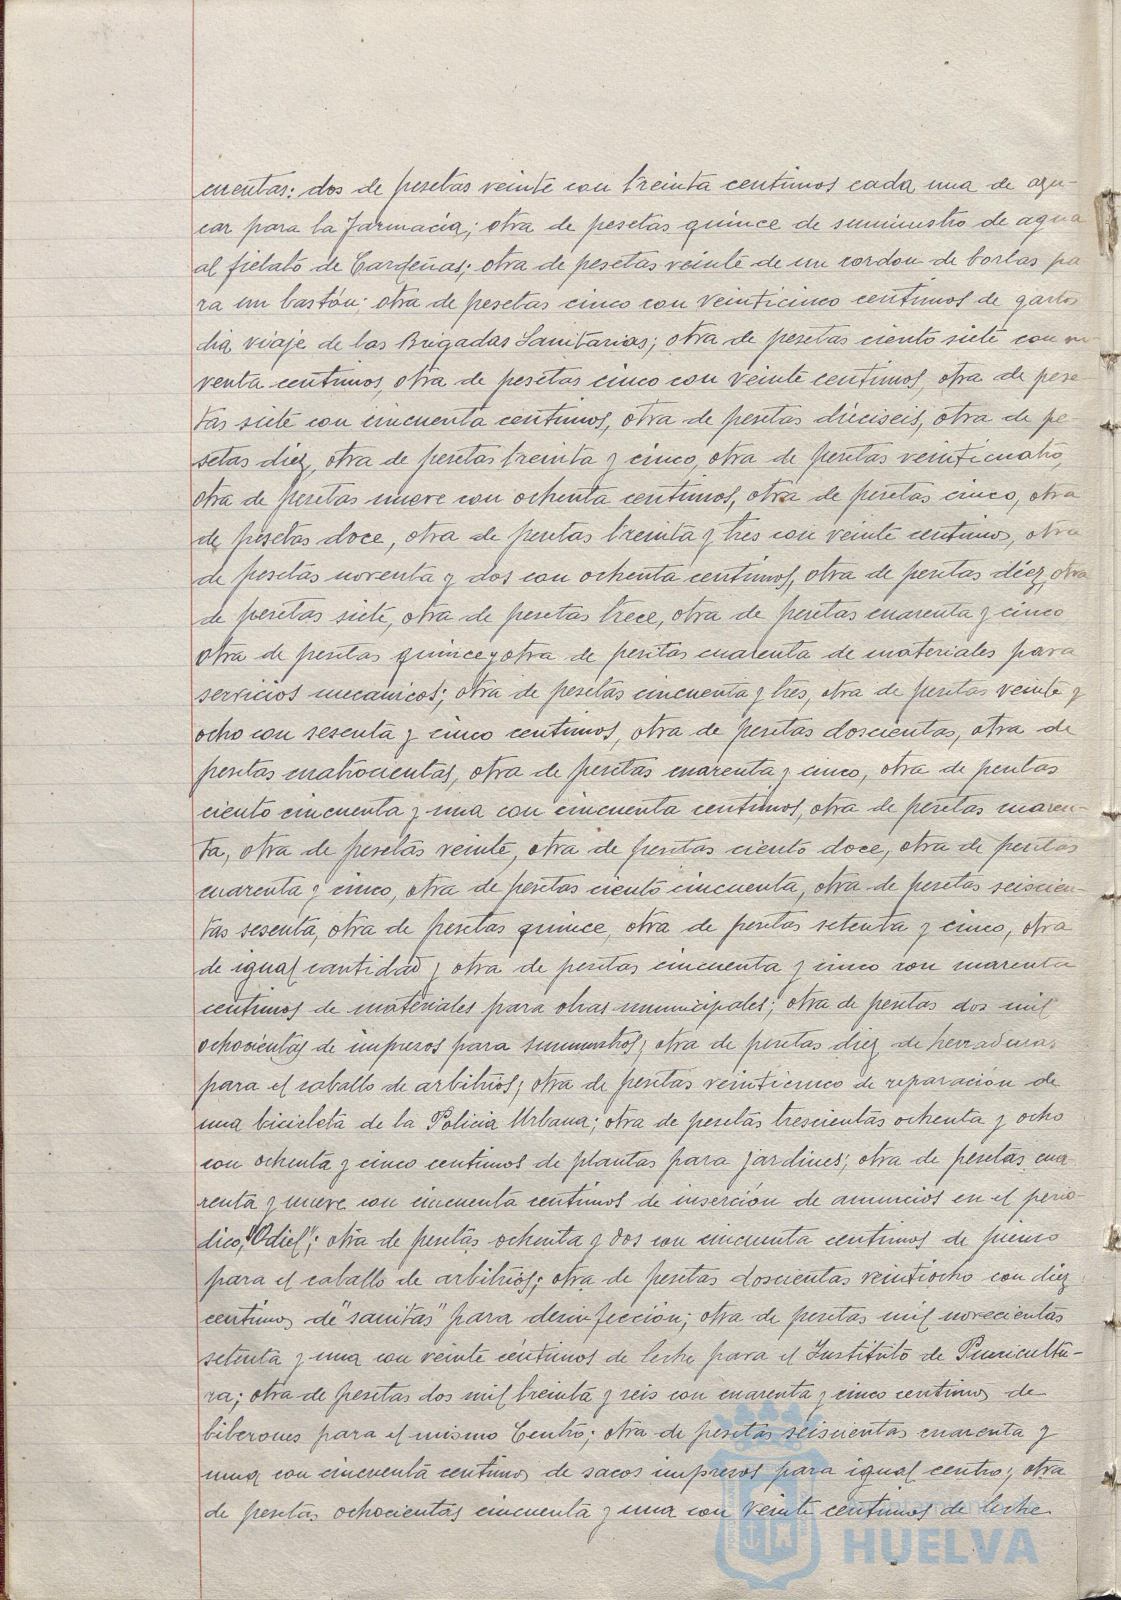 cuentas: dos de pesetas veinte con treinta centimos cada una de azu-
car para la Farmacia; otra de pesetas quince de suministro de agua
al fielato de Cardeñas; otra de pesetas veinte de un cordon de borlas pa
ra un bastón; otra de pesetas cinco con veinticinco centimos de gastos
dia viaje de las Brigadas Sanitarias; otra de pesetas ciento siete con no-
venta centimos, otra de pesetas cinco con veinte centimos, otra de pese-
tas siete con cincuenta centimos, otra de pesetas dieciseis, otra de pe
setas diez, otra de pesetas treinta y cinco, otra de pesetas veinticuatro,
otra de pesetas nueve con ochenta centimos, otra de pesetas cinco, otra
de pesetas doce, otra de pesetas treinta y tres con veinte centimos, otra
de pesetas noventa y dos con ochenta centimos, otra de pesetas diez, otra
de pesetas siete, otra de pesetas trece, otra de pesetas cuarenta y cinco
otra de pesetas quince y otra de pesetas cuarenta de materiales para
servicios mecanicos; otra de pesetas cincuenta y tres, otra de pesetas veinte y
ocho con sesenta y cinco centimos, otra de pesetas doscientas, otra de
pesetas cuatrocientas, otra de pesetas cuarenta y cinco, otra de pesetas
ciento cincuenta y una con cincuenta centimos, otra de pesetas cuaren-
ta, otra de pesetas veinte, otra de pesetas ciento doce, otra de pesetas
cuarenta y cinco, otra de pesetas ciento cincuenta, otra de pesetas seiscien-
tas sesenta, otra de pesetas quince, otra de pesetas setenta y cinco, otra
de igual cantidad y otra de pesetas cincuenta y cinco con cuarenta
centimos de materiales para obras municipales; otra de pesetas dos mil
ochocientas de impresos para suministros; otra de pesetas diez de herraduras
para el caballo de arbitrios; otra de pesetas veinticinco de reparación de
una bicicleta de la Policia Urbana; otra de pesetas trescientas ochenta y ocho
con ochenta y cinco centimos de plantas para jardines; otra de pesetas cua-
renta y nueve con cincuenta centimos de inserción de anuncios en el perio-
dico, "Odiel"; otra de pesetas ochenta y dos con cincuenta centimos de pienso
para el caballo de arbitrios; otra de pesetas doscientas veintiocho con diez
centimos de "sanitas" para desinfección; otra de pesetas mil novecientas
setenta y una con veinte céntimos de leche para el Instituto de Puericultu-
ra; otra de pesetas dos mil treinta y seis con cuarenta y cinco centimos de
biberones para el mismo Centro; otra de pesetas seiscientas cuarenta y
una con cincuenta centimos de sacos impresos para igual centro; otra
de pesetas ochocientas cincuenta y una con veinte centimos de leche
Ayuntamiento de
HUELVA